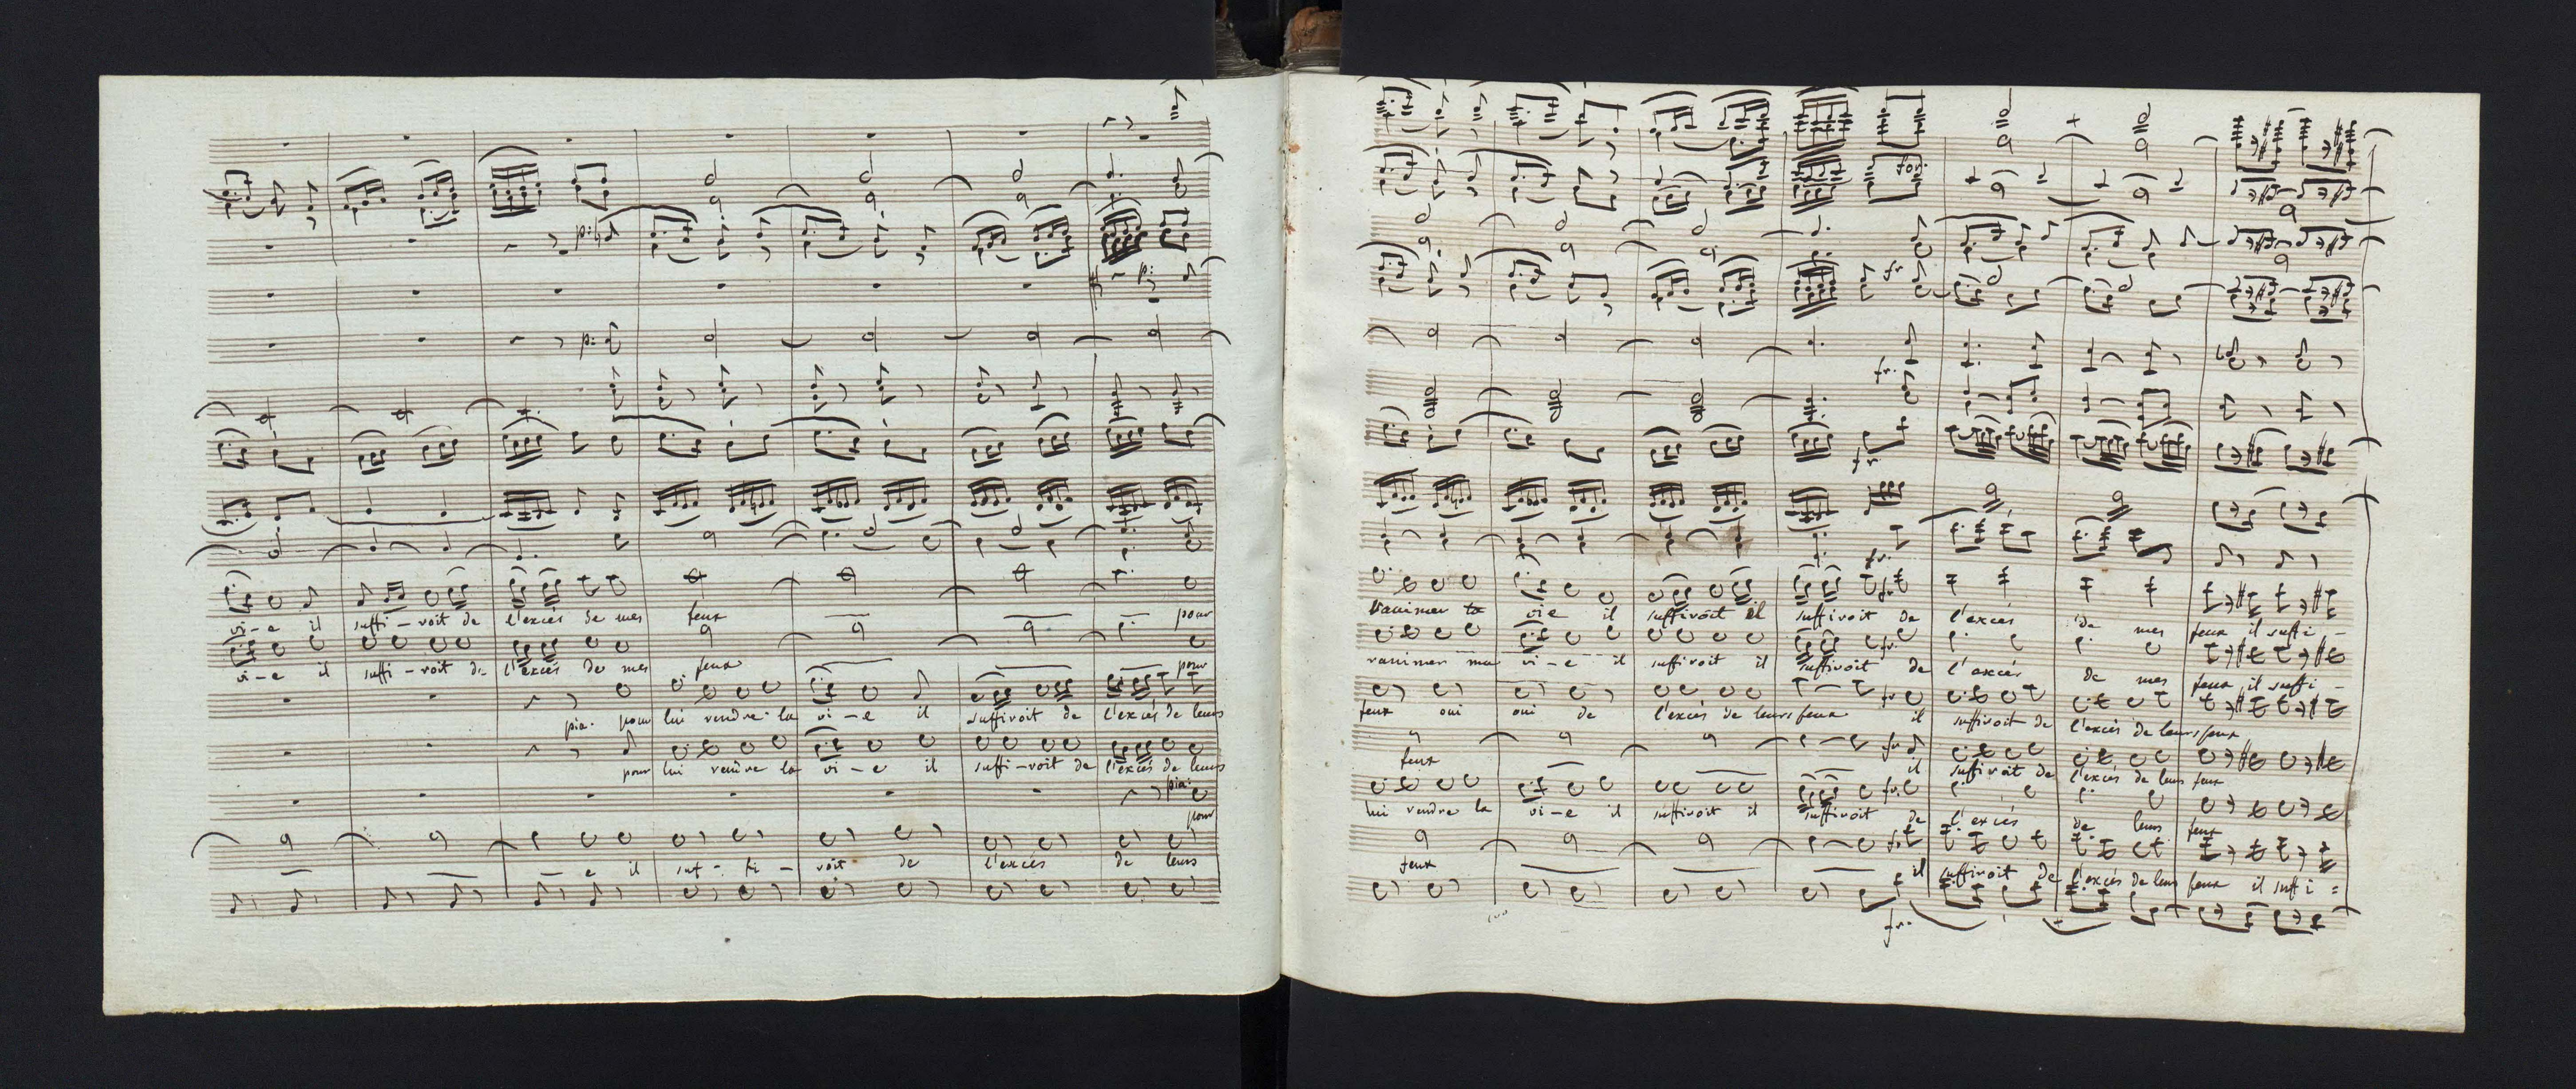 p:
p:
p:
vi-e il suffi-voit de l'excès de mes feux pour
vi-e il suffi-voit de l'excès de mes feux pour
pia. pour lui rendre la vi-e il suffivoit de l'excès de leurs
pour lui rendre la vi-e il suffi-voit de l'excès de leurs
pia:
pour
- e il suf-fi-voit de l'excès de leurs
for:
fr.
fr.
fr.
fr.
ranimer vie il suffivoit il suffivoit de l'excès de mes feux il suffi-
fr.
ranimer ma vi-e il suffivoit il suffivoit de l'excès de mes feux il suffi-
fr.
feux oui oui de l'excès de leurs feux il suffivoit de l'excès de leurs feux
fr.
feux il suffivoit de l'excès de leurs feux
fr.
lui rendre la vi-e il suffivoit il suffivoit de l'excès de leurs feux
fr.
feux il suffivoit de l'excès de leurs feux il suffi=
fr.